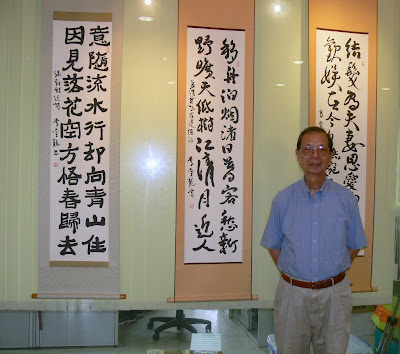 意隨流水行却向青山住
因見落花空方悟春歸去
移舟泊烟渚日暮客愁新
野曠天低樹江清月近人
結髮為夫妻恩愛
歡娛在今